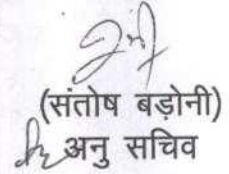 (संतोष बड़ोनी)
अनु सचिव